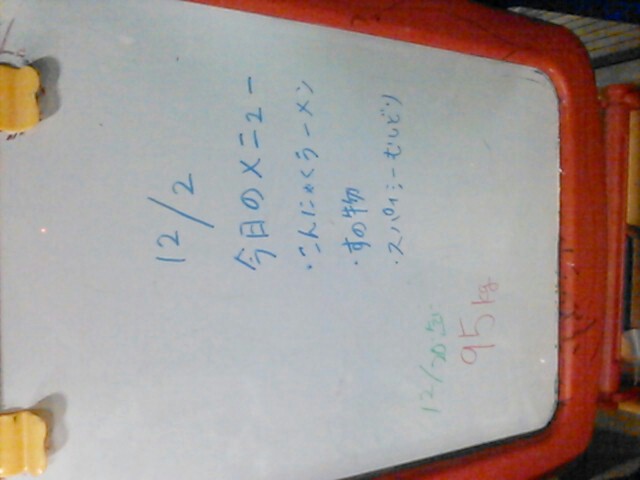 12/2
今日のメニュー
・こんにゃくラーメン
・すの物
・スパイシーむしどり
95kg